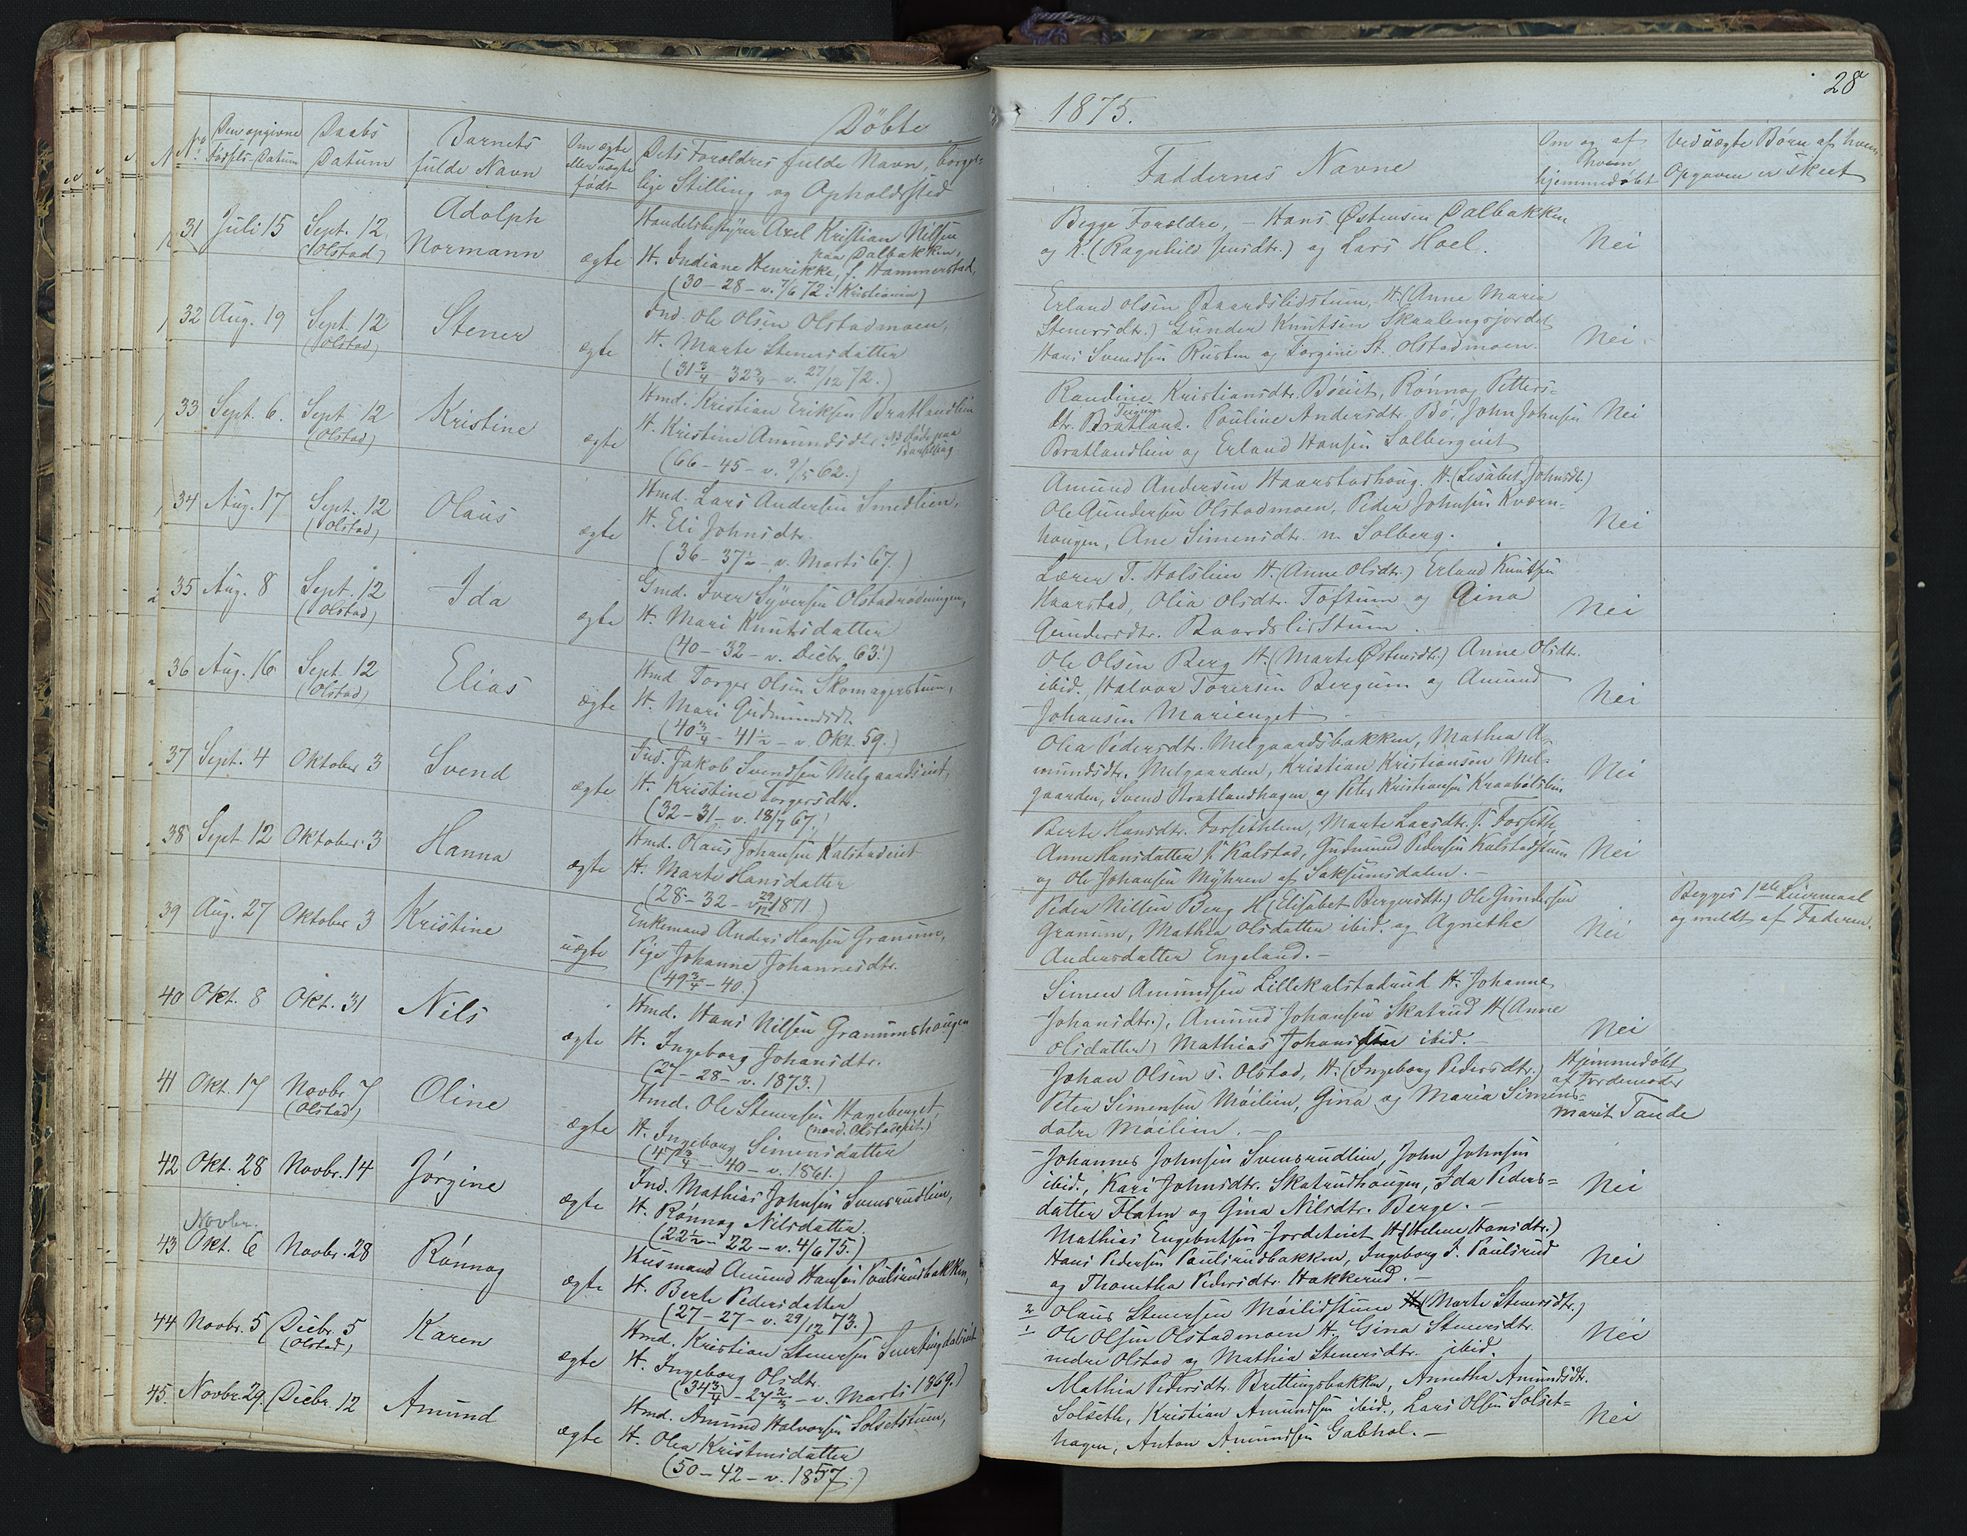 Døbte
No
Den opgivne
Fødsels-Datum
Daabs
Datum
Barnets
fulde Navn
Om ægte
eller uægte
født
Dets Forældres fulde Navn, borger-
lige Stilling og Opholdssted
31 Juli 15 Sept. 12 (Olstad) Adolph Normann ægte
Handelsbestyrer Axel Kristian Nilsen
paa Dalbakken,
H. Indiane Henrikke, f. Hammerstad,
(30 – 28 – v. 7/6 72 i Kristiania)
32 Aug. 19 Sept. 12 (Olstad) Stener ægte
Ind. Ole Olsen Olstadmoen,
H. Marte Stenersdatter
(31¾ – 32¾ – v. 27/12 72.)
33 Sept. 6. Sept. 12 (Olstad) Kristine ægte
Hmd. Kristian Eriksen Bratlandlien
H. Kristine Amundsdtr.
(66 – 45 – v. 9/5 62.)
34 Aug. 17 Sept. 12 (Olstad) Olaus ægte
Hmd. Lars Andersen Smedlien,
H. Eli Johnsdtr.
(36 – 37½ – v. Marts 67.)
35 Aug. 8 Sept. 12 (Olstad) Ida ægte
Gmd. Iver Syversen Olstadrødningen,
H. Mari Knutsdatter
(40 – 32 – v. Decbr. 63.)
36 Aug. 16 Sept. 12 (Olstad) Elias ægte
Hmd Torger Olsen Skomagerstuen,
H. Mari Gudmundsdt.
(40¾ – 41½ – v. Okt. 59.)
37 Sept. 4 Oktober 3 Svend ægte
Ind. Jakob Svendsen Melgaardseiet,
H. Kristine Torgersdtr.
(32 – 31 – v. 18/7 67.)
38 Sept 12 Oktober 3 Hanna ægte
Hmd. Olaus Johansen Kalstadeiet
H. Marte Hansdatter
(28 – 32 – v. 29/12 1871)
39 Aug. 27 Oktober 3 Kristine uægte
Enkemand Anders Hansen Granum,
Pige Johanne Johannesdtr.
(49¾ – 40.)
40 Okt. 8 Okt. 31 Nils ægte
Hmd. Hans Nilsen Granumshaugen
H. Ingeborg Johansdtr.
(27 – 28 – v. 1873.)
41 Okt. 17 Novbr. 7 (Olstad) Oline ægte
Hmd. Ole Stenersen Hageberget,
H. Ingeborg Simensdatter
(47¾ – 40 – v. 1861.)
42 Okt. 28 Novbr. 14 Jørgine ægte
Ind. Mathias Johnsen Svensrudlien,
H. Rønnog Nilsdatter
(22½ – 22 – v. 4/6 75.)
Novbr.
43 Okt. 6 Novbr. 28 Rønnog ægte
Husmand Amund Hansen Paulsrudbakken,
H. Berte Pedersdatter
(27 – 27 – v. 29/12 73.)
44 Novbr. 5 Decbr. 5 (Olstad) Karen ægte
Hmd. Kristian Stenersen Sverlingdalseiet
H. Ingeborg Olsdtr.
(34¾ – 27⅔ – v. Marts 1869.)
45. Novbr 29. Decbr. 12 Amund ægte
Hmd. Amund Halvorsen Solsetstuen,
H. Olea Kristensdatter
(50 – 42 – v. 1857.)
28
1875.
Faddernes Navne
Om og af
hvem
hjemmedøbt
Ved uægte Børn af hvem
Opgaven er skeet
Begge Forældre, – Hans Østensen Dalbakken
og H. (Ragnhild Jensdtr.) og Lars Hoel. Nei
Erland Olsen Baardslistuen, H. (Anne Maria
Stenersdtr.) Gunder Knutsen Skaalengsjordet
Hans Svendsen Rusten og Torgine St. Olstadmoen. Nei.
Randine Kristiansdtr. Bøeiet, Rønnog Petters-
dtr. Bratland. Pauline Andersdtr. Bø, John Johnsen Nei
Bratlandlien og Erland Hansen Solbergeiet
Amund Andersen Haarstadhaug. H. (Lisabet Johnsdt.)
Ole Gundersen Olstadmoen, Peder Johnsen Kværn-
haugen, Ane Simensdtr. n. Solberg. Nei
Lærer T. Holslien H. (Anne Olsdtr.) Erland Knutsen
Haarstad, Olia Olsdtr. Toftum og Gina
Gundersdtr. Baardslistuen Nei
Ole Olsen Berg H. (Marte Østensdtr.) Anne Olsdtr.
ibid, Halvor Torersen Bergum og Amund
Johansen Marienget. Nei
Olea Pedersdtr. Melgaardsbakken, Mathea A-
mundsdtr. Melgaarden, Kristian Kristiansen Mel-
gaarden, Svend Bratlandhagen og Peter Kristiansen Kraabølslien Nei
Berte Hansdtr. Forsethlien, Marte Larsdtr. s. Forseth,
Anne Hansdatter s. Kalstad, Gudmund Pedersen Kalstadstuen
og Ole Johansen Myhren af Saksumsdalen. – Nei
Peder Nilsen Berg H. (Elisabet Bergersdtr.) Ole Gundersen
Granum, Mathea Olsdatter ibid. og Agnethe
Andersdatter Engeland. – Nei
Begges 1ste Leiermaal
og meldt af Faderen.
Simen Amundsen Lillekalstadrud H. Johanne
Johansdtr.), Amund Johansen Skatrud H. (Anne
Olsdatter) Mathias Johansen ibid. – Nei
Johan Olsen s. Olstad, H. (Ingeborg Pedersdtr.)
Peter Simensen Moilien, Gina og Maria Simens-
døtre Moilien. –
Hjemmedøbt
af Jordemoder
Marit Tande
Johannes Johnsen Svensrudlien, John Johnsen
ibid., Kari Johnsdtr. Skatrudhaugen, Ida Peders-
datter Flaten og Gina Nilsdtr. Berge. – Nei
Mathias Engebretsen Jordeteiet H. (Helene Hansdtr.)
Hans Pedersen Paulsrudbakken, Ingeborg J. Paulsrud
og Thonetha Pedersdtr. Hakkerud. – Nei
2/1 Olaus Stenersen Moilidstuen H. (Marte Stenersdtr.)
Ole Olsen Olstadmoen H. Gina Stenersdtr.
nedre Olstad og Mathea Stenersdtr. ibid. Nei
Mathea Pedersdtr. Brettingsbakken, Annetha Amundsdt.
Solseth, Kristian Amundsen ibid., Lars Olsen Solset-
hagen, Anton Amundsen Gabhol. – Nei